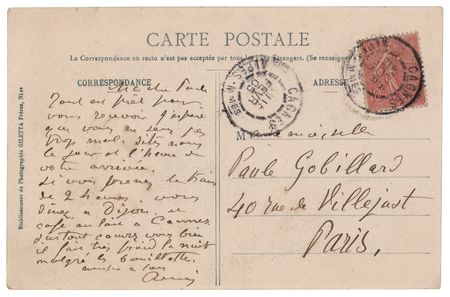 CARTE POSTALE
La Correspondance au recto n'est pas acceptée par tous les pays étrangers. (Se renseigner
CORRESPONDANCE
ADRESSE
Ma chère Paule
Tout est prêt pour
vous recevoir J'espère
que vous ne serez pas
trop mal. Dites nous
le jour et l'heure de
votre arrivée.
Si vous prenez le train
de 2 heures, vous
dînez à Dijon, et
café au lait à Cannes
surtout couvrez vous bien
il fait très froid la nuit
malgré les bouillottes.
amitiés à tous
Mademoiselle
Paule Gobillard
40 rue de Villejust
Paris,
CAGNES
CAGNES
Etablissement de Photographie GILETTA Frères, Nice